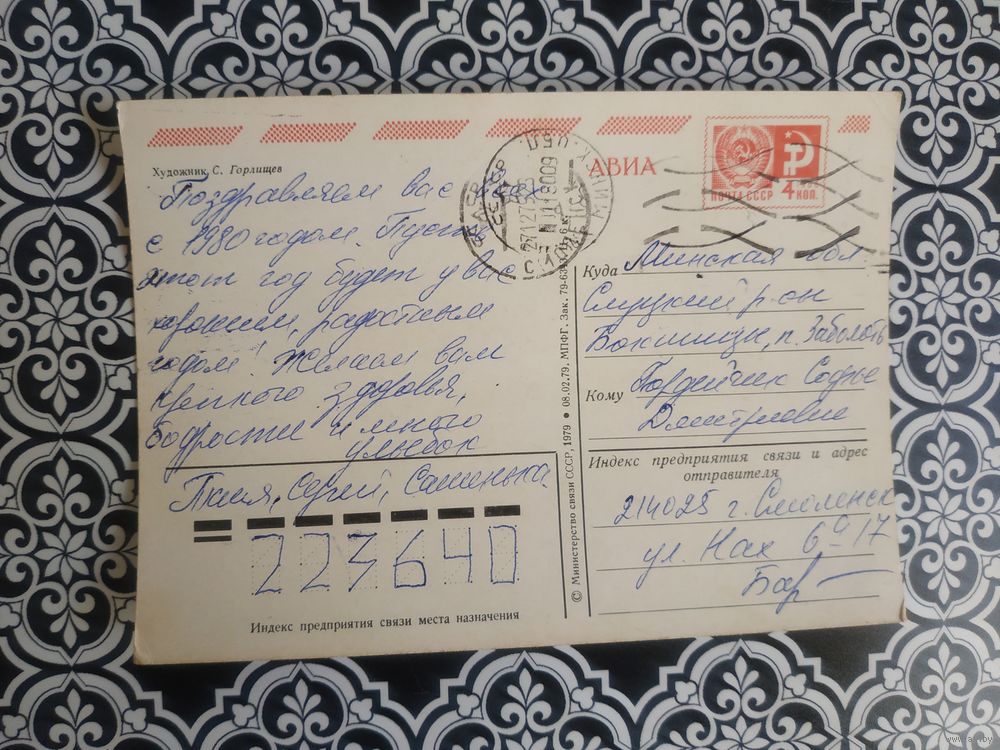 Художник С. Горлищев
АВИА
ПОЧТА СССР 4 КОП.
Поздравляем вас
с 1980 годом. Пусть
этот год будет у вас
хорошим, радостным
годом! Желаем вам
крепкого здоровья,
бодрости и много
улыбок
Сергей, Сашенька
223640
Индекс предприятия связи места назначения
© Министерство связи СССР, 1979 • 08.02.79. МПФГ. Зак. 79-63
Куда Минская обл
Слуцкий р-он
п. Заболоть
Кому Гордейчик Софье
Дмитриевне
Индекс предприятия связи и адрес отправителя
214025 г. Смоленск
ул. Нах 6а 17
Бар